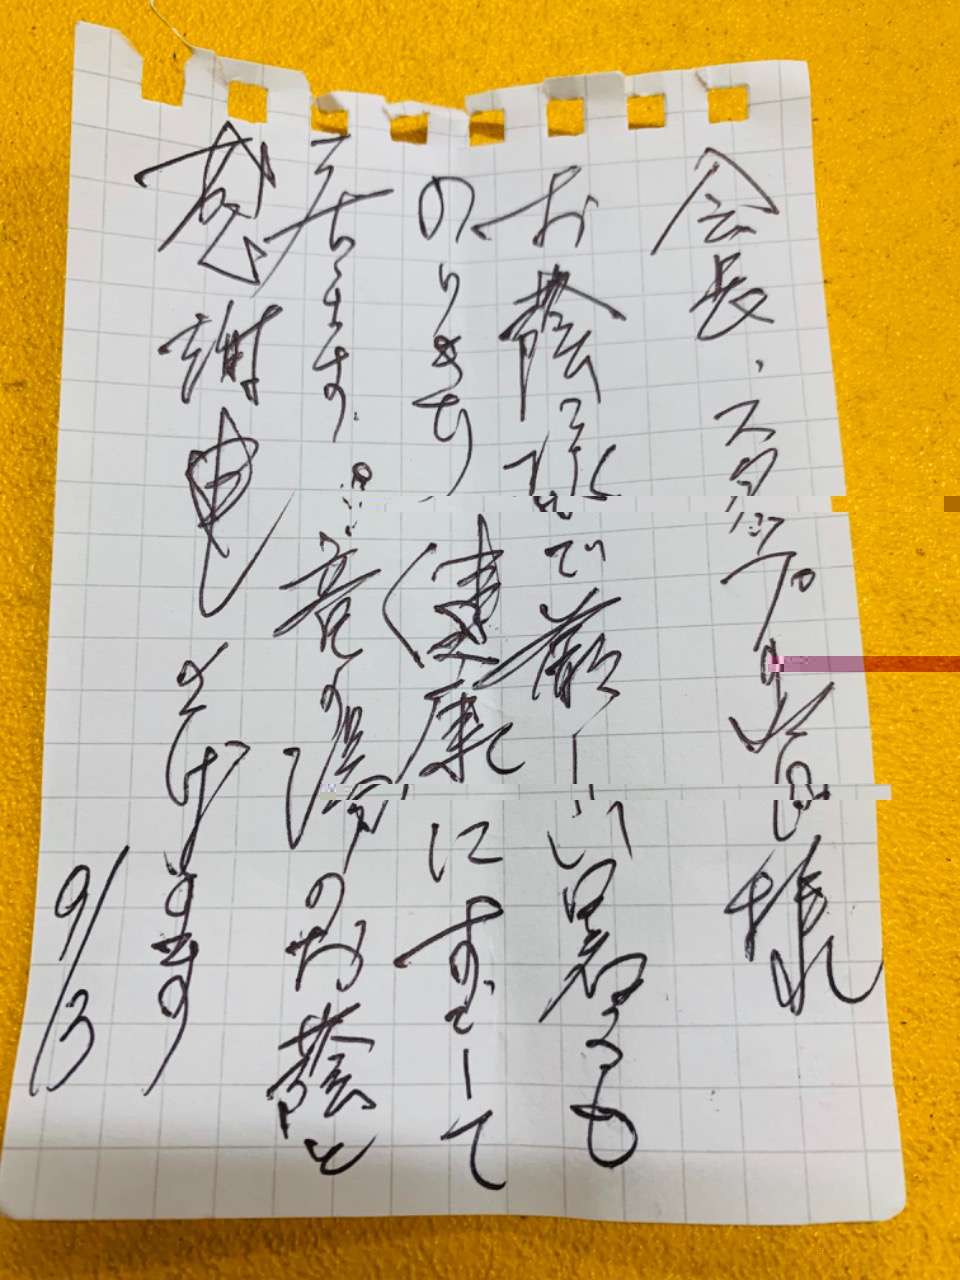 会長、スタッフの皆様
お蔭様で厳しい暑さも
のりきり健康にすごして
居ります。竜の湯のお蔭と
感謝申し上げます
9/3